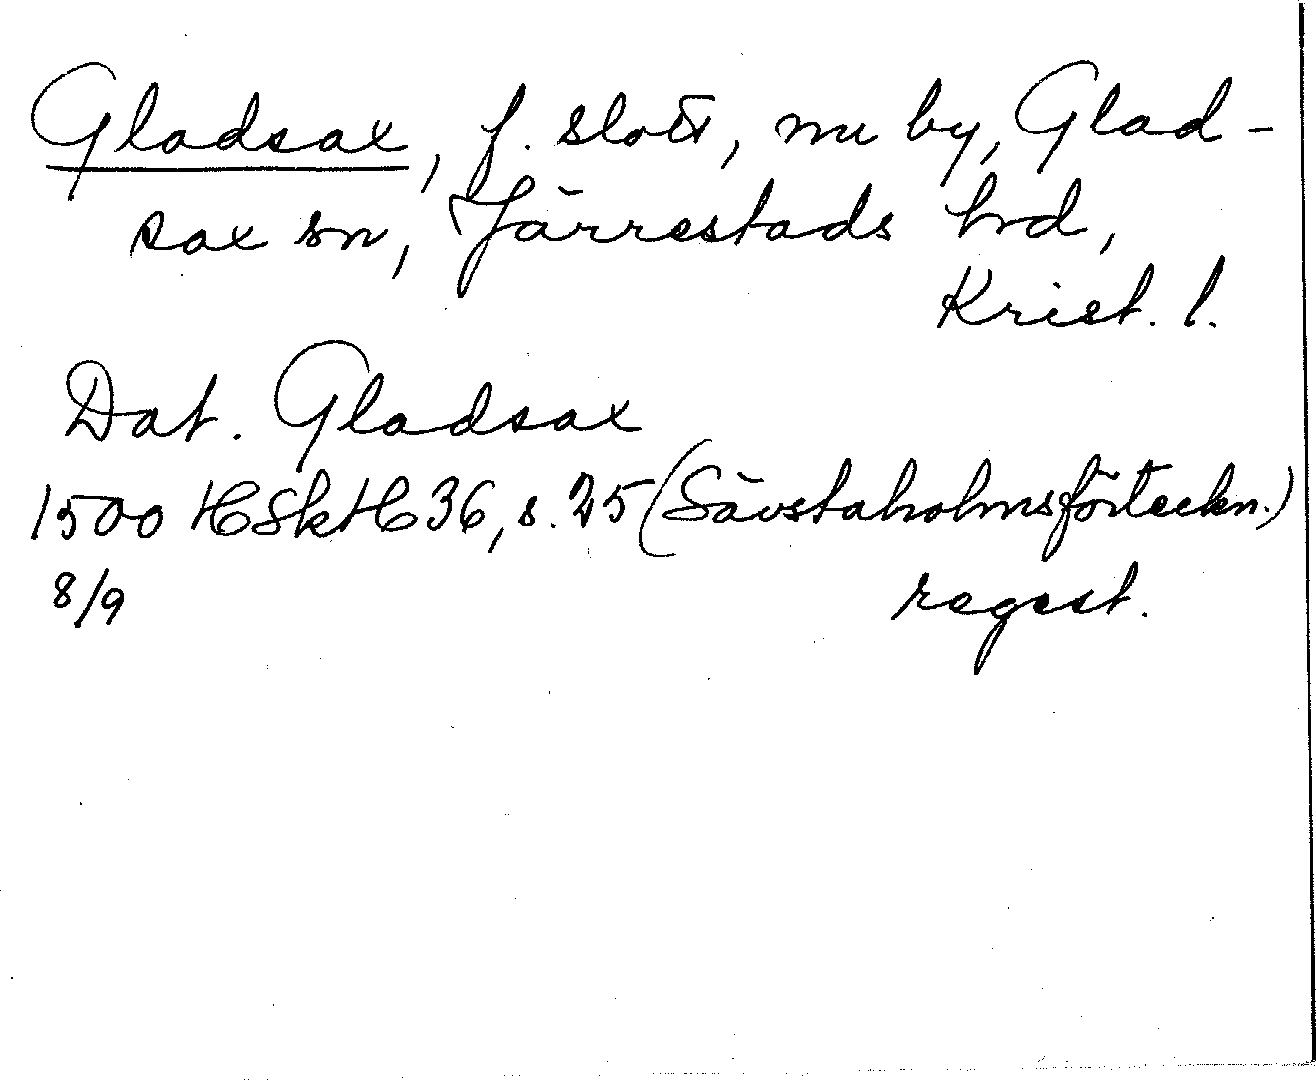 Gladsax, f. slott, nu by, Glad-
sax sn, Järrestads hd,
Krist. l.
Dat. Gladsax
1500 HSkH 36, s. 25 (Sävstaholmsförteckn.)
8/9 regest.